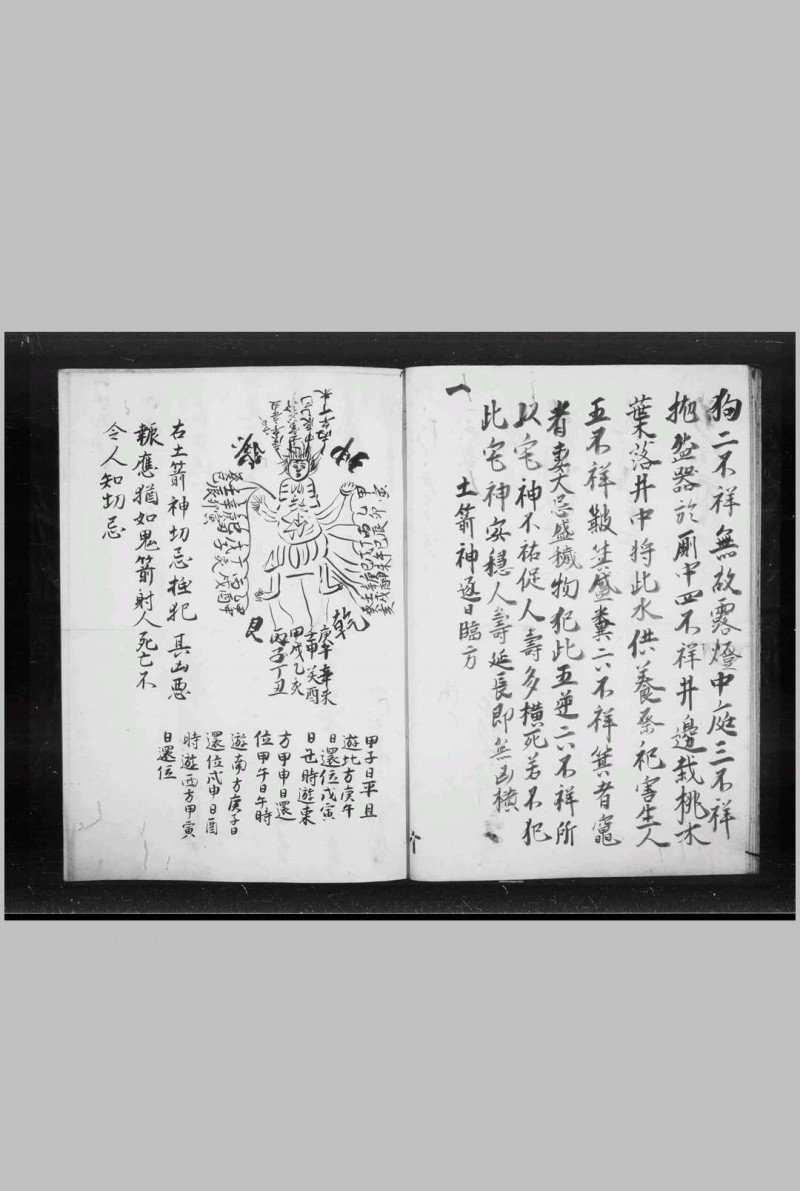 狗二不祥無故露燈中庭三不祥
抛盆器於厠中四不祥井邊栽桃木
葉落井中将此水供養祭祀害生人
五不祥簸箕盛糞六不祥箕者竈
者妻大忌盛穢物犯此五逆六不祥所
以宅神不祐促人壽多橫死若不犯
此宅神安穩人壽延長即無凶橫
一
土箭神逐日臨方
乾
艮
庚午辛未
壬申癸酉
甲戌乙亥
丙子丁丑
甲子日平旦
遊北方庚午
日還位戊寅
日丑時遊東
方甲申日還
位甲午日午時
遊南方庚子日
還位戊申日酉
時遊西方甲寅
日還位
右土箭神切忌抵犯其凶惡
輙應猶如鬼箭射人死亡不
令人知切忌